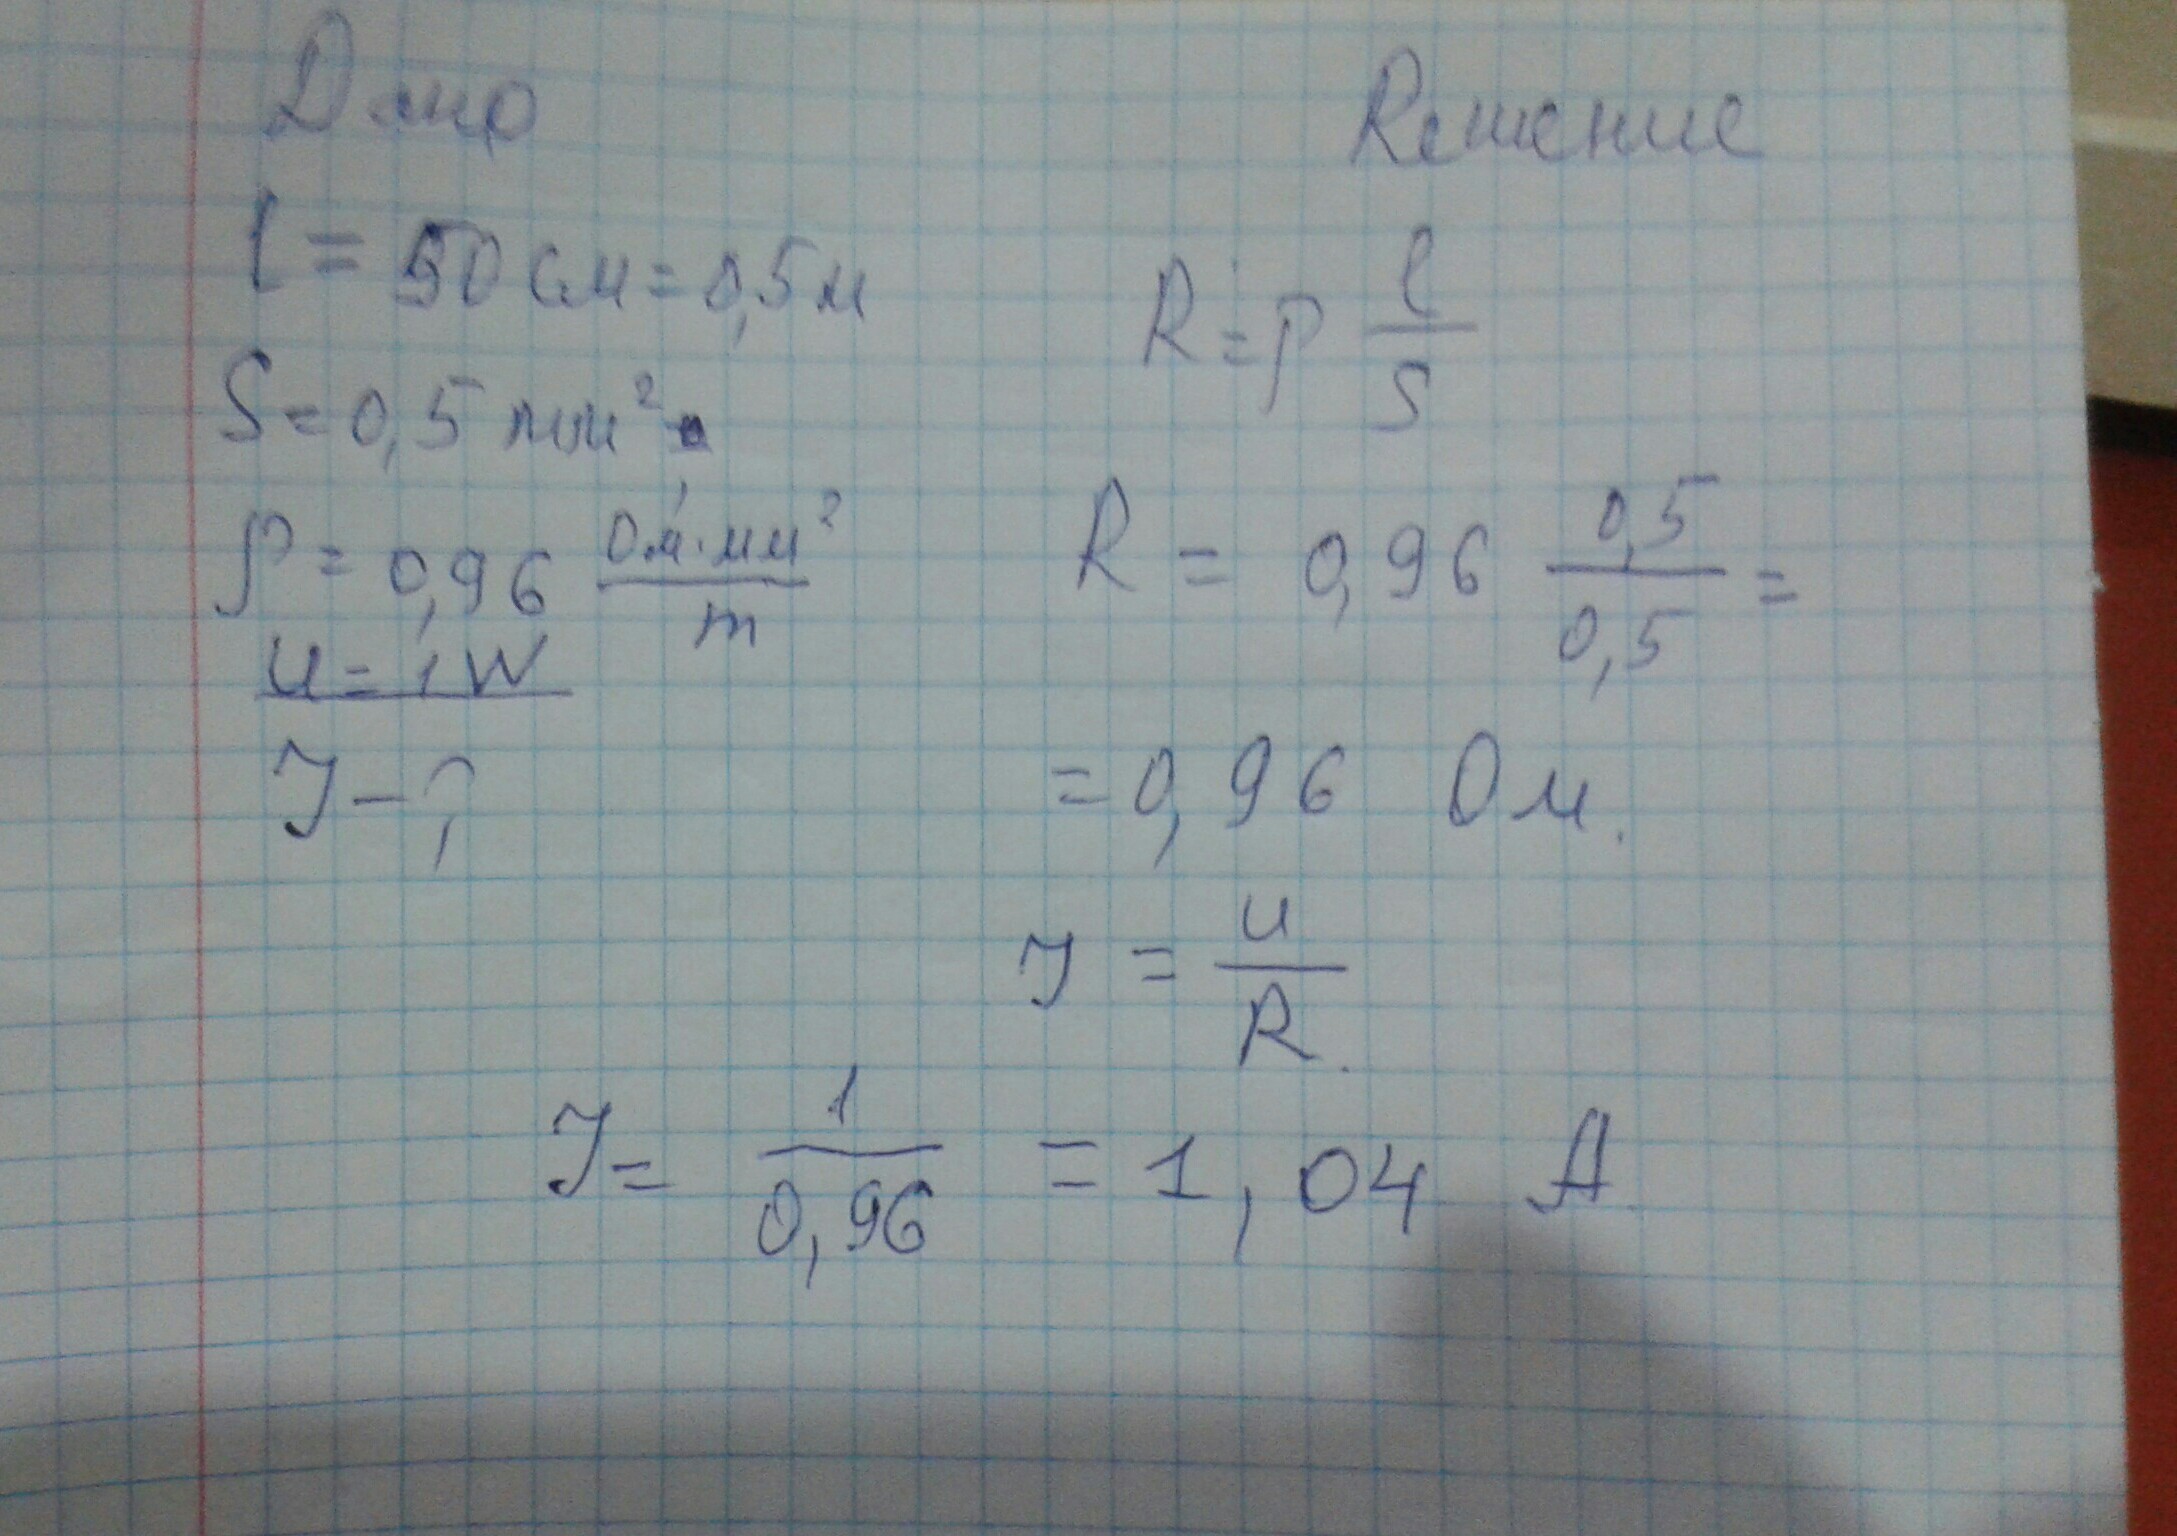 Дано
l = 50 см = 0,5 м
S = 0,5 мм²
ρ = 0,96 Ом·мм²/m
U = 1 W
J - ?
Решение
R = ρ l/S
R = 0,96 0,5/0,5 =
= 0,96 Ом.
J = U/R.
J = 1/0,96 = 1,04 А